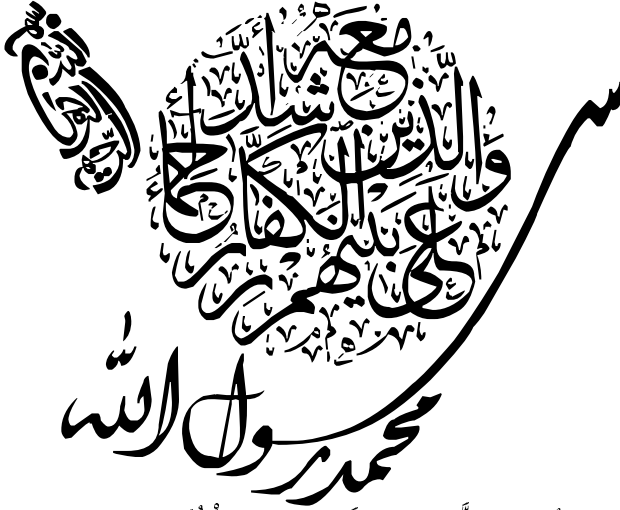 بسم الله الرحمن الرحيم
محمد رسول الله
والذين معه أشداء
على الكفار رحماء
بينهم